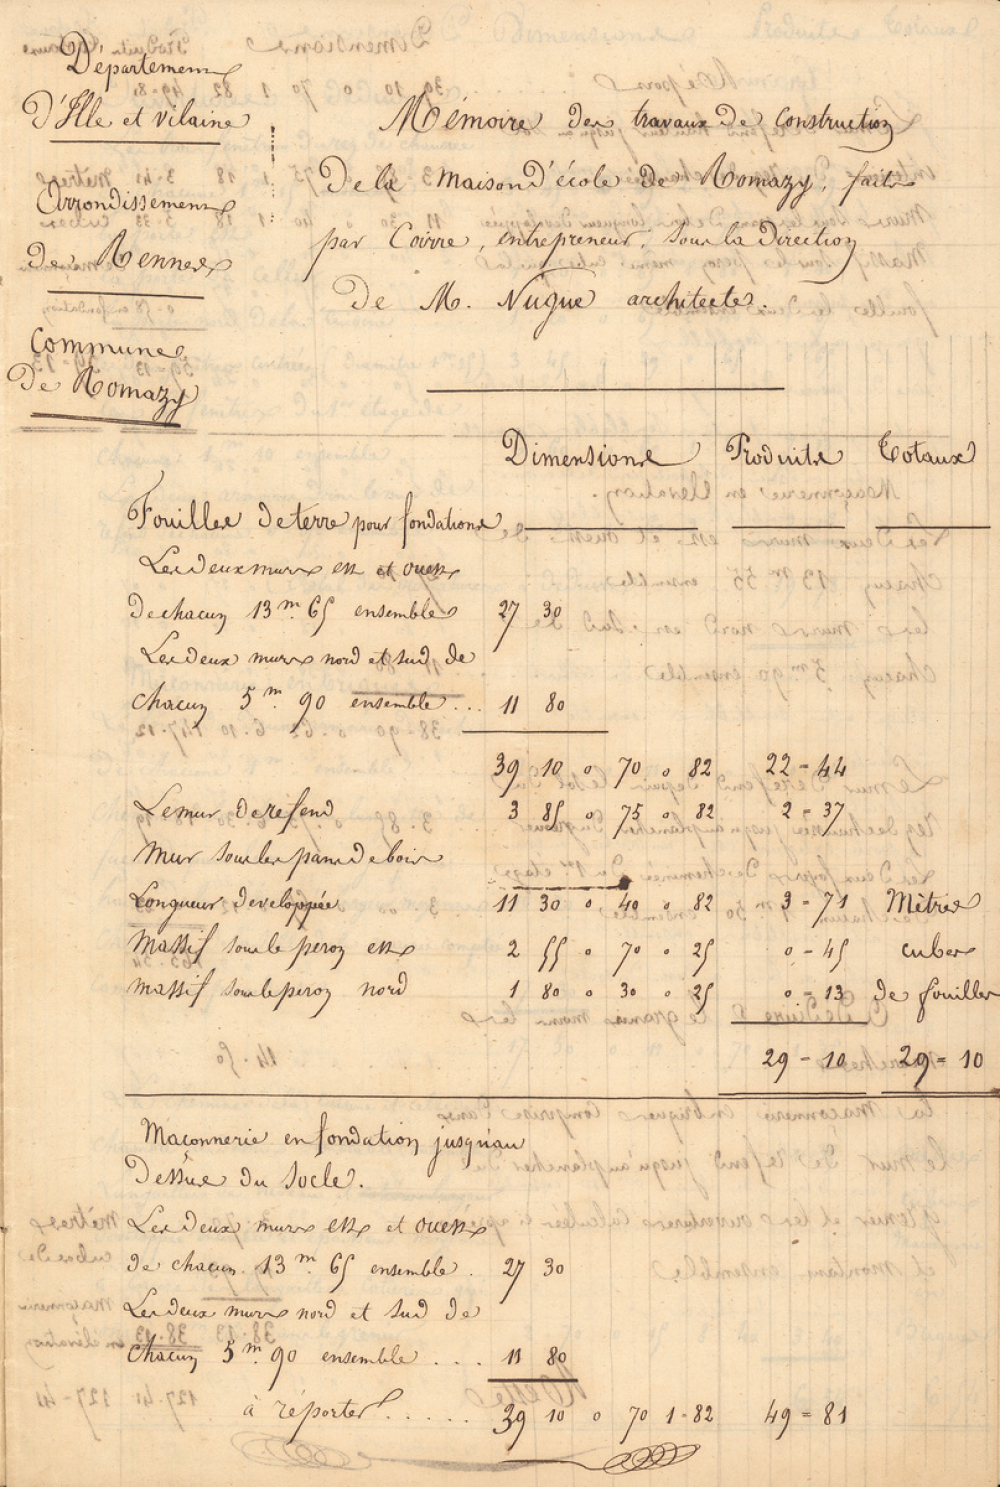 Departement
d'Ille et vilaine
Arrondissement
de Rennes
Commune
de Romazy
Mémoire des travaux de Construction
De la maison d'école de Romazy, faits
par Coirre, entrepreneur, sous la Direction
De M. Nugue architecte.
Dimensions Produits Totaux
Fouilles de terre pour fondations
Les deux murs est et ouest
De chacun 13 m. 65 ensemble 27 30
Les deux murs nord et sud de
chacun 5 m. 90 ensemble... 11 80
39 10 0 70 0 82 22 = 44
Le mur de refend 3 85 0 75 0 82 2 = 37
Mur sous les pans de bois
Longueur developpée 11 30 0 40 0 82 3 = 71 Mètres
Massif sous le peron est 2 55 0 70 0 25 0 = 45 cubes
Massif sous le peron nord 1 80 0 30 0 25 0 = 13 de fouilles
29 = 10 29 = 10
Maçonnerie en fondation jusqu'au
Dessus du Socle.
Les deux murs est et ouest
de chacun 13 m. 65 ensemble. 27 30
Les deux murs nord et sud de
Chacun 5 m. 90 ensemble.... 11 80
à réporter...... 39 10 0 70 1 = 82 49 = 81